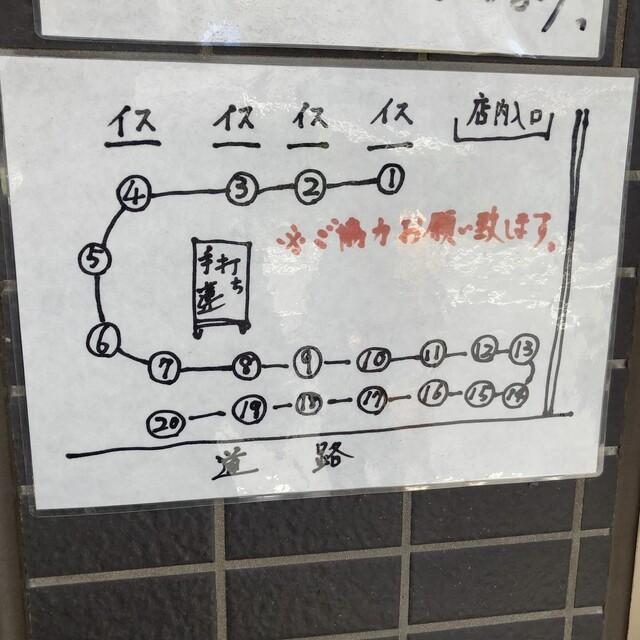 イス イス イス イス 店内入口
④ ③ ② ①
※ご協力お願い致します。
⑤
手打ち
⑥
⑦ ⑧ ⑨ ⑩ ⑪ ⑫ ⑬
⑳ ⑲ ⑱ ⑰ ⑯ ⑮ ⑭
道路